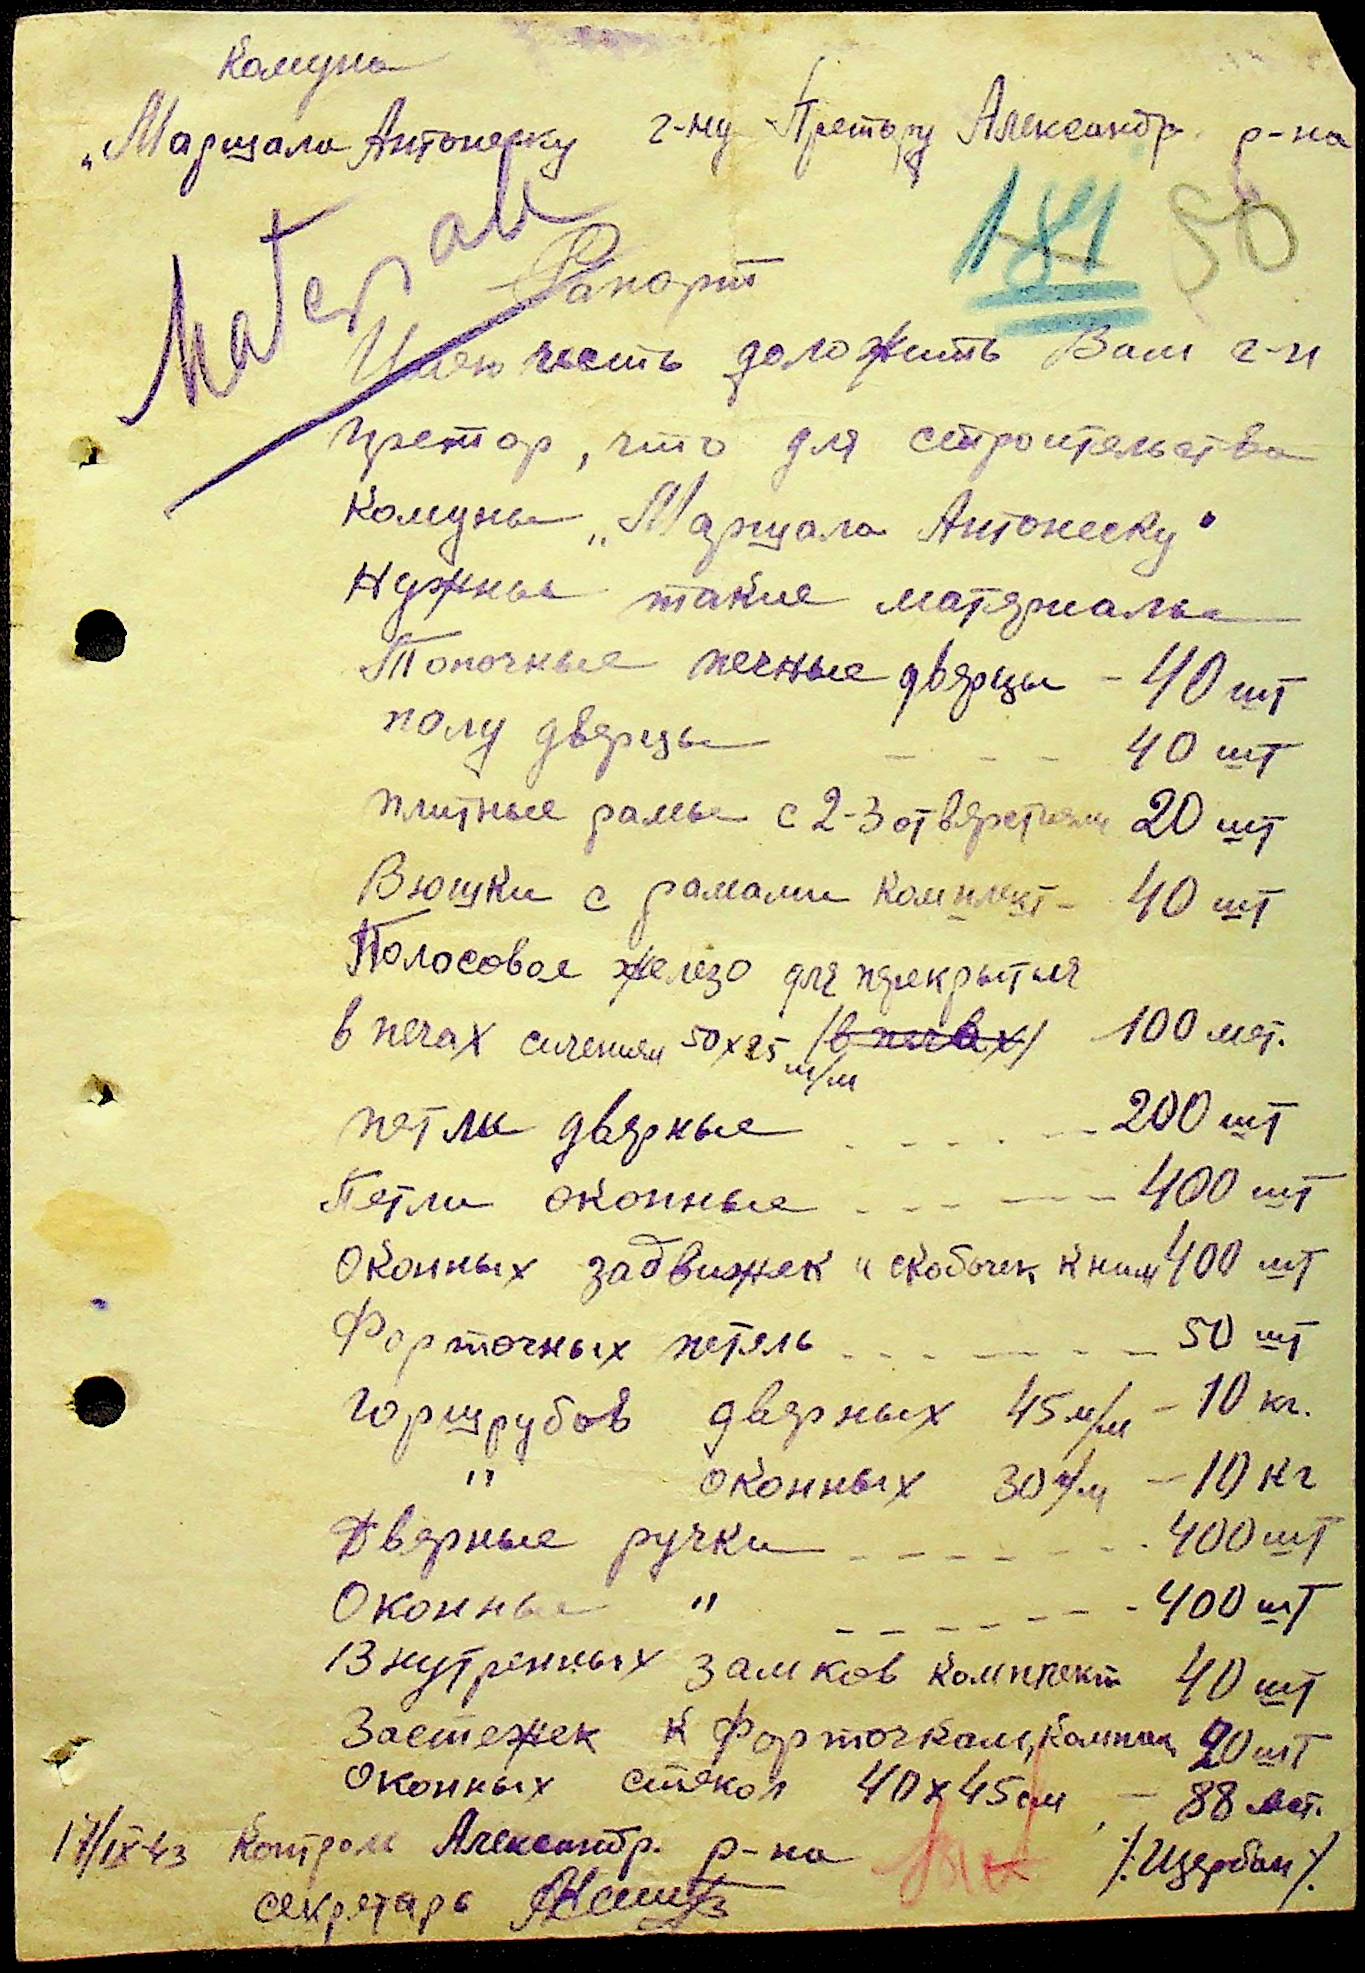 Комуна
„Маршала Антонеску г-ну Претору Александр. р-на
181 50
Material
Рапорт
Имею честь доложить Вам г-н
претор, что для строительства
комуны „Маршала Антонеску"
нужны такие матерялы
Топочные печные дверцы - 40 шт
полу дверцы - - - 40 шт
плитные рамы с 2-3 отверстиями 20 шт
Вюшки с рамами комплект - 40 шт
Полосовое железо для перекрытия
в печах сичением 50х25 м/м /в печах/ 100 мет.
петли дверные - - - - 200 шт
Петли оконные - - - - - 400 шт
Оконных задвижек и скобочек к ним 400 шт
Форточных петель - - - - - - - 50 шт
Горшрубов дверных 45 м/м - 10 кг.
" оконных 30 м/м - 10 кг
Дверные ручки - - - - - - - 400 шт
Оконные " - - - - - - - 400 шт
Внутренных замков комплект 40 шт
Застежек к форточкам, комплек 20 шт
Оконных стекол 40х45 см - 88 мет.
17/IX-43 Контрол Александр. р-на /Щербан/.
секретарь